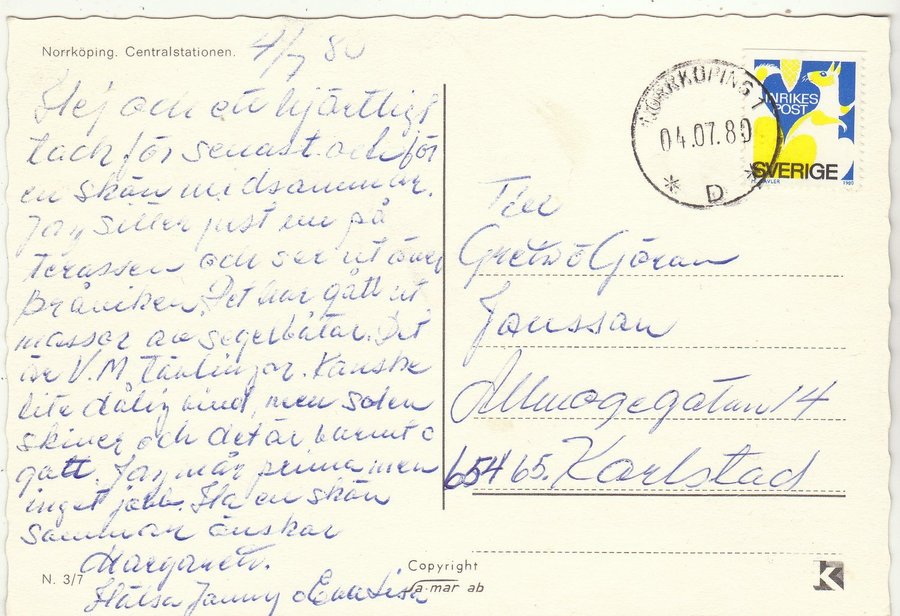 Norrköping. Centralstationen.
4/7 80
Hej och ett hjärtligt
tack för senast och för
en skön midsommar.
Jag sitter just nu på
terassen och ser ut över
Bråviken. Det har gått ut
massor av segelbåtar. Det
är V.M. tävlingar. Kanske
lite dålig vind, men solen
skiner och det är varmt o
gott. Jag mår prima men
inget jobb. Ha en skön
sommar önskar
Margareta.
Hälsa Janny o Eva Lisa
N. 3/7
Copyright
sa-mar ab
NORRKÖPING 1
04.07.80
* D *
INRIKES
POST
SVERIGE
1980
Till
Greta o Göran
Jonsson
Allmogegatan 14
654 65. Karlstad
K